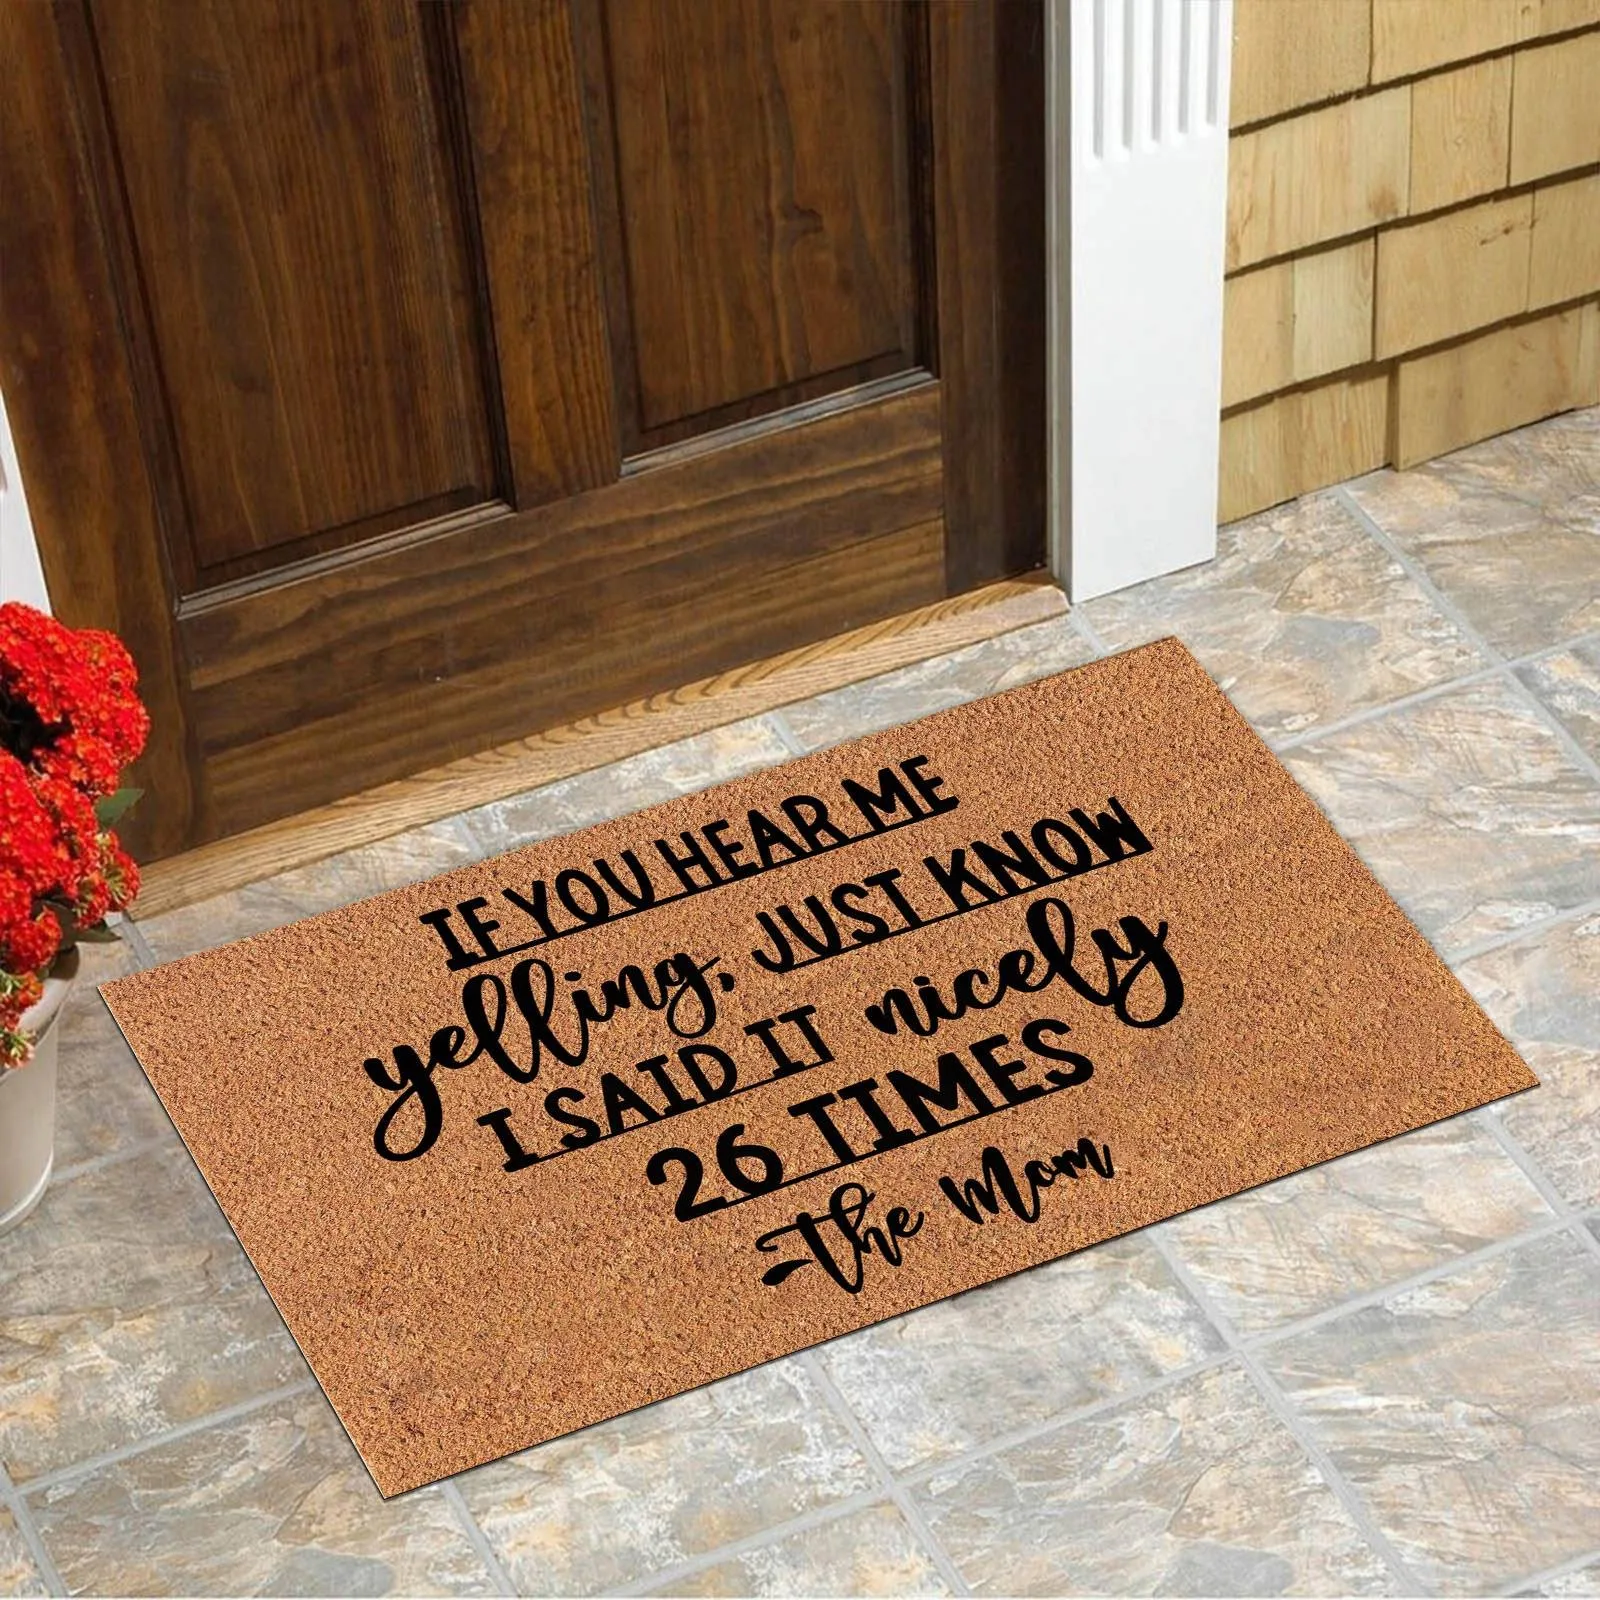 IF YOU HEAR ME
yelling, JUST KNOW
I SAID IT nicely
26 TIMES
-The Mom